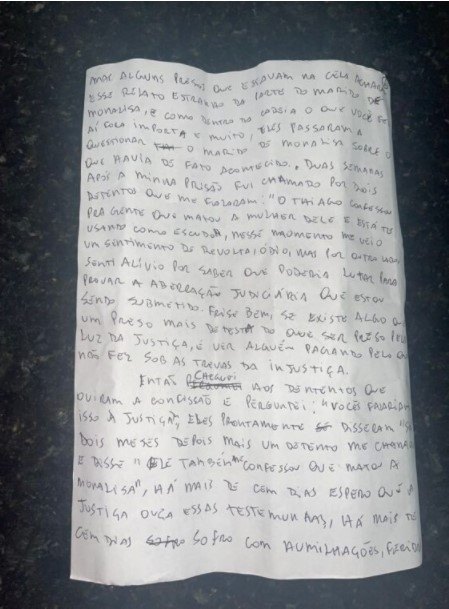 MAS ALGUNS PRESOS QUE ESTAVAM NA CELA ACHARAM
ESSE RELATO ESTRANHO DA PARTE DO MARIDO DE
MONALISA, E COMO DENTRO DA CADEIA O QUE VOCÊ FEZ
AÍ FORA IMPORTA E MUITO, ELES PASSARAM A
QUESTIONAR O MARIDO DE MONALISA SOBRE O
QUE HAVIA DE FATO ACONTECIDO. DUAS SEMANAS
APÓS A MINHA PRISÃO FUI CHAMADO POR DOIS
DETENTOS QUE ME FALARAM: "O THIAGO CONFESSOU
PRA GENTE QUE MATOU A MULHER DELE E ESTÁ TE
USANDO COMO ESCUDO", NESSE MOMENTO ME VEIO
UM SENTIMENTO DE REVOLTA, ODIO, MAS POR OUTRO LADO,
SENTI ALÍVIO POR SABER QUE PODERIA LUTAR PARA
PROVAR A ABERRAÇÃO JUDICIÁRIA QUE ESTOU
SENDO SUBMETIDO. FRISE BEM, SE EXISTE ALGO QUE
UM PRESO MAIS DETESTA DO QUE SER PRESO PELA
LUZ DA JUSTIÇA, É VER ALGUÉM PAGANDO PELO QUE
NÃO FEZ SOB AS TREVAS DA INJUSTIÇA.
ENTÃO CHEGUEI AOS DETENTOS QUE
OUVIRAM A CONFISSÃO E PERGUNTEI: "VOCÊS FALARIAM
ISSO À JUSTIÇA", ELES PRONTAMENTE DISSERAM "SIM
DOIS MESES DEPOIS MAIS UM DETENTO ME CHAMOU
E DISSE "ELE TAMBÉM ME CONFESSOU QUE MATOU A
MONALISA", HÁ MAIS DE CEM DIAS ESPERO QUE A
JUSTIÇA OUÇA ESSAS TESTEMUNHAS, HÁ MAIS DE
CEM DIAS SOFRO COM HUMILHAÇÕES, FERIDAS